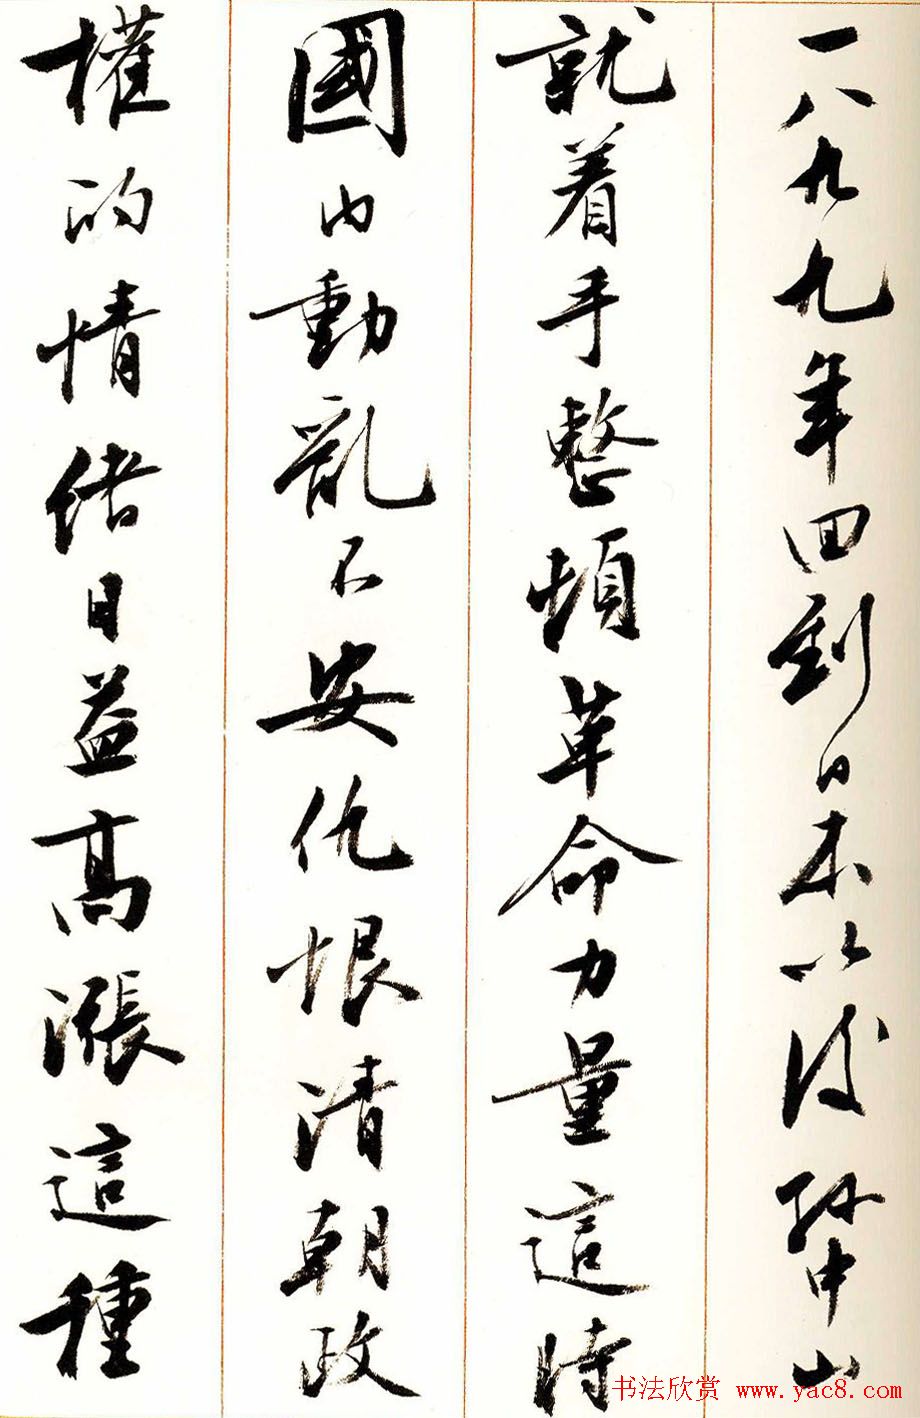 一八九九年回到日本以後孫中山
就着手整頓革命力量這時
國内動亂不安仇恨清朝政
權的情绪日益高漲這種
书法欣赏 www.yac8.com